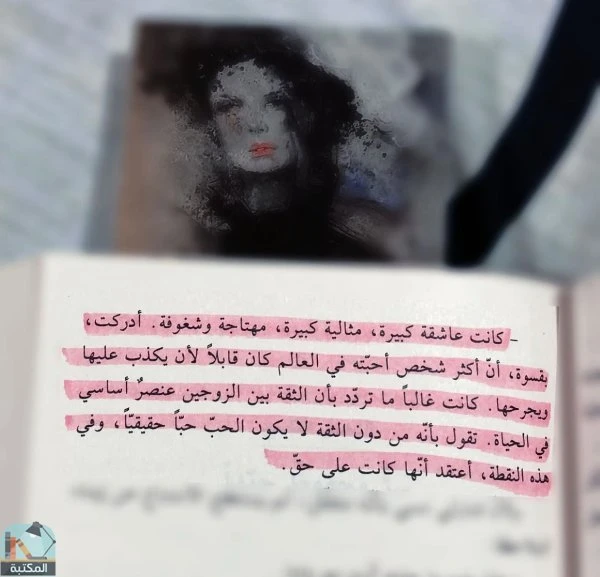 - كانت عاشقة كبيرة، مثالية كبيرة، مهتاجة وشغوفة. أدركت،
بقسوة، أنّ أكثر شخص أحبّته في العالم كان قابلاً لأن يكذب عليها
ويجرحها. كانت غالباً ما تردّد بأن الثقة بين الزوجين عنصرٌ أساسي
في الحياة. تقول بأنّه من دون الثقة لا يكون الحبّ حبّاً حقيقيّاً، وفي
هذه النقطة، أعتقد أنّها كانت على حقّ.
المكتبة